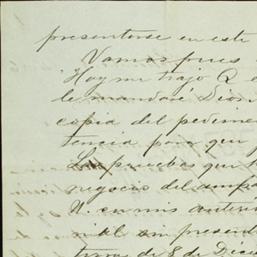 presentarse en este
Vamos pues
Hoy me trajo Q
le mandaré Dion
copia del pedime
tencia para que
Las pruebas que
negocio del ampa
U. en mis anteri
sin present
de 8 de Dici